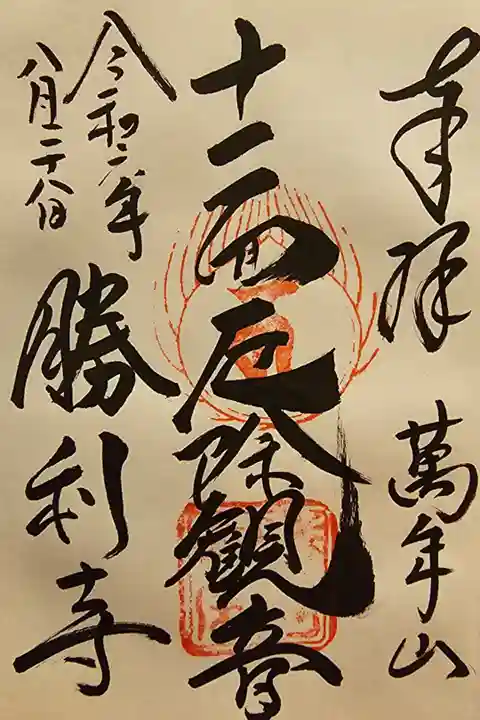 奉拝 萬年山
十一面厄除観音
令和六年
八月二十八日
勝利寺